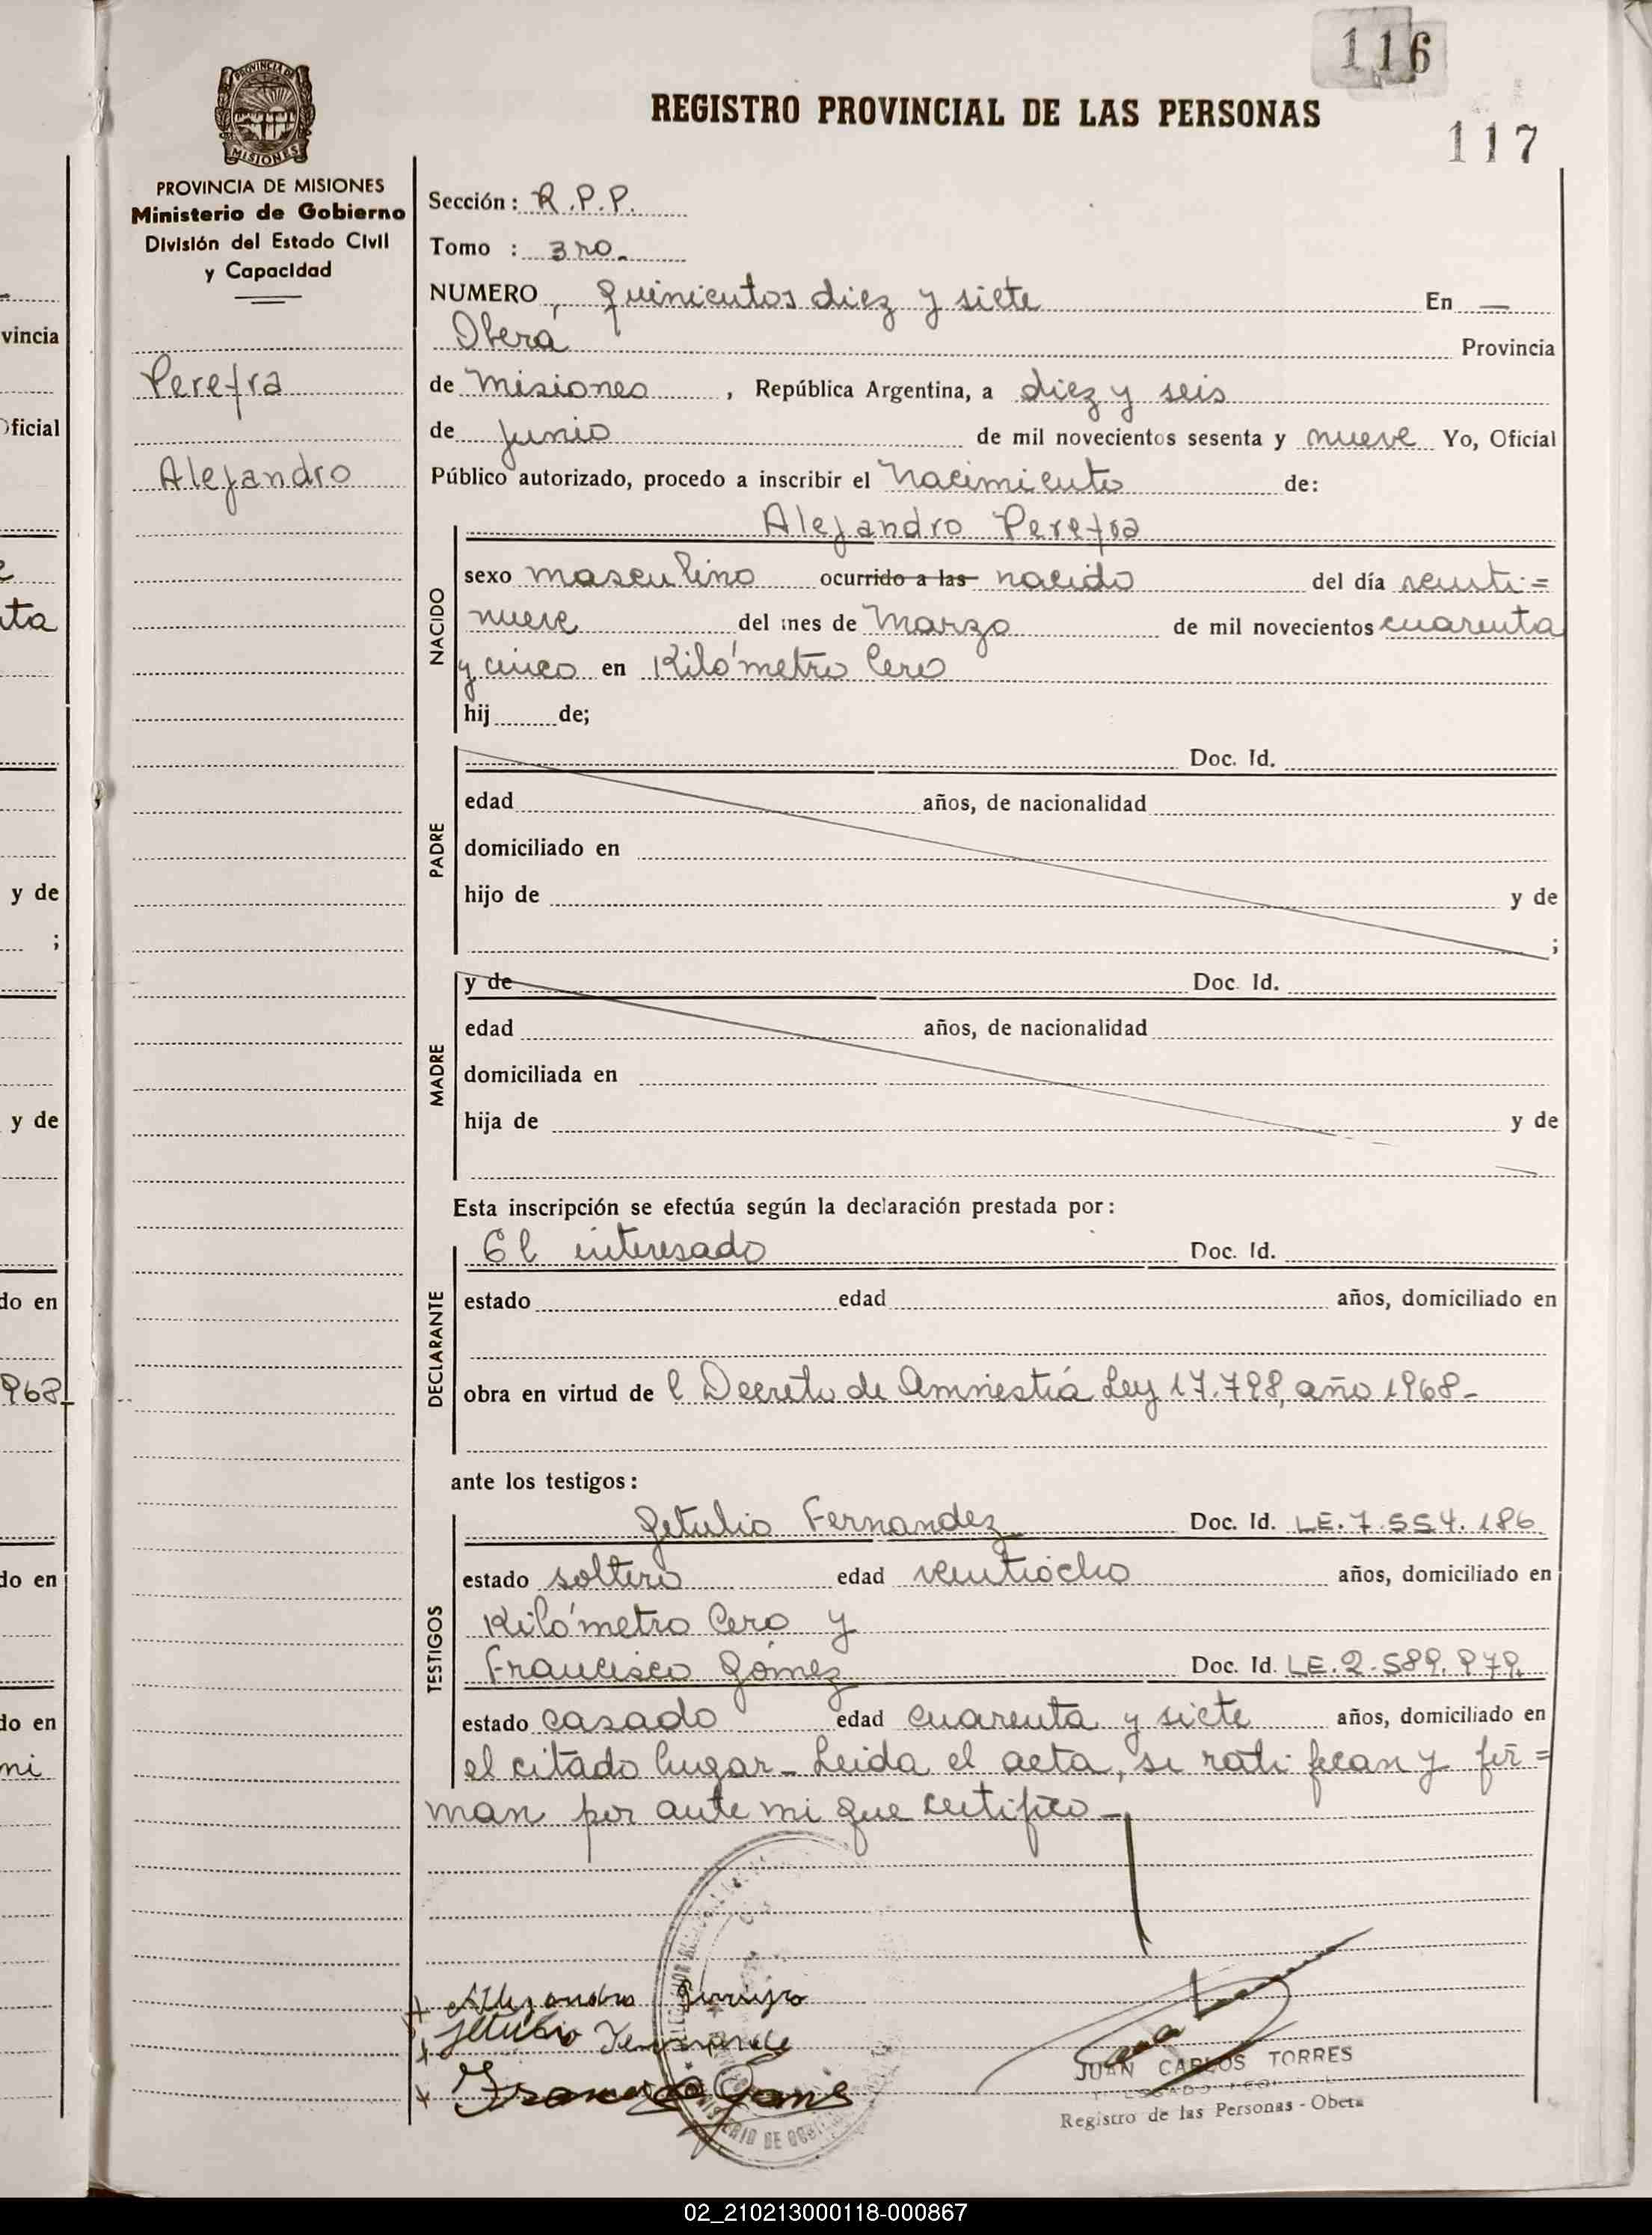 116
REGISTRO PROVINCIAL DE LAS PERSONAS
117
PROVINCIA DE MISIONES
Ministerio de Gobierno
División del Estado Civil
y Capacidad
Pereyra
Alejandro
Sección: R.P.P.
Tomo : 3ro.
NUMERO, quinientos diez y siete En —
Oberá Provincia
de Misiones, República Argentina, a diez y seis
de Junio de mil novecientos sesenta y nueve Yo, Oficial
Público autorizado, procedo a inscribir el Nacimiento de:
Alejandro Pereyra
NACIDO
sexo masculino ocurrido a las nacido del día veinti=
nueve del mes de Marzo de mil novecientos cuarenta
y cinco en Kilómetro Cero
hij de;
PADRE
Doc. Id.
edad años, de nacionalidad
domiciliado en
hijo de y de
;
MADRE
y de Doc. Id.
edad años, de nacionalidad
domiciliada en
hija de y de
Esta inscripción se efectúa según la declaración prestada por:
DECLARANTE
El interesado Doc. Id.
estado edad años, domiciliado en
obra en virtud de l Decreto de Amnestiá Ley 17.798, año 1968-
ante los testigos:
TESTIGOS
Getulio Fernandez Doc. Id. LE. 7.554.186
estado soltero edad veintiocho años, domiciliado en
Kilómetro Cero y
Francisco Gómez Doc. Id. LE. 2.589.979.
estado casado edad cuarenta y siete años, domiciliado en
el citado lugar- Leida el acta, se ratifican y fir=
man por ante mi que certifico-
Getulio
JUAN CARLOS TORRES
Registro de las Personas - Oberá
vincia
Oficial
ta
y de
;
y de
do en
968
do en
do en
mi
02_210213000118-000867